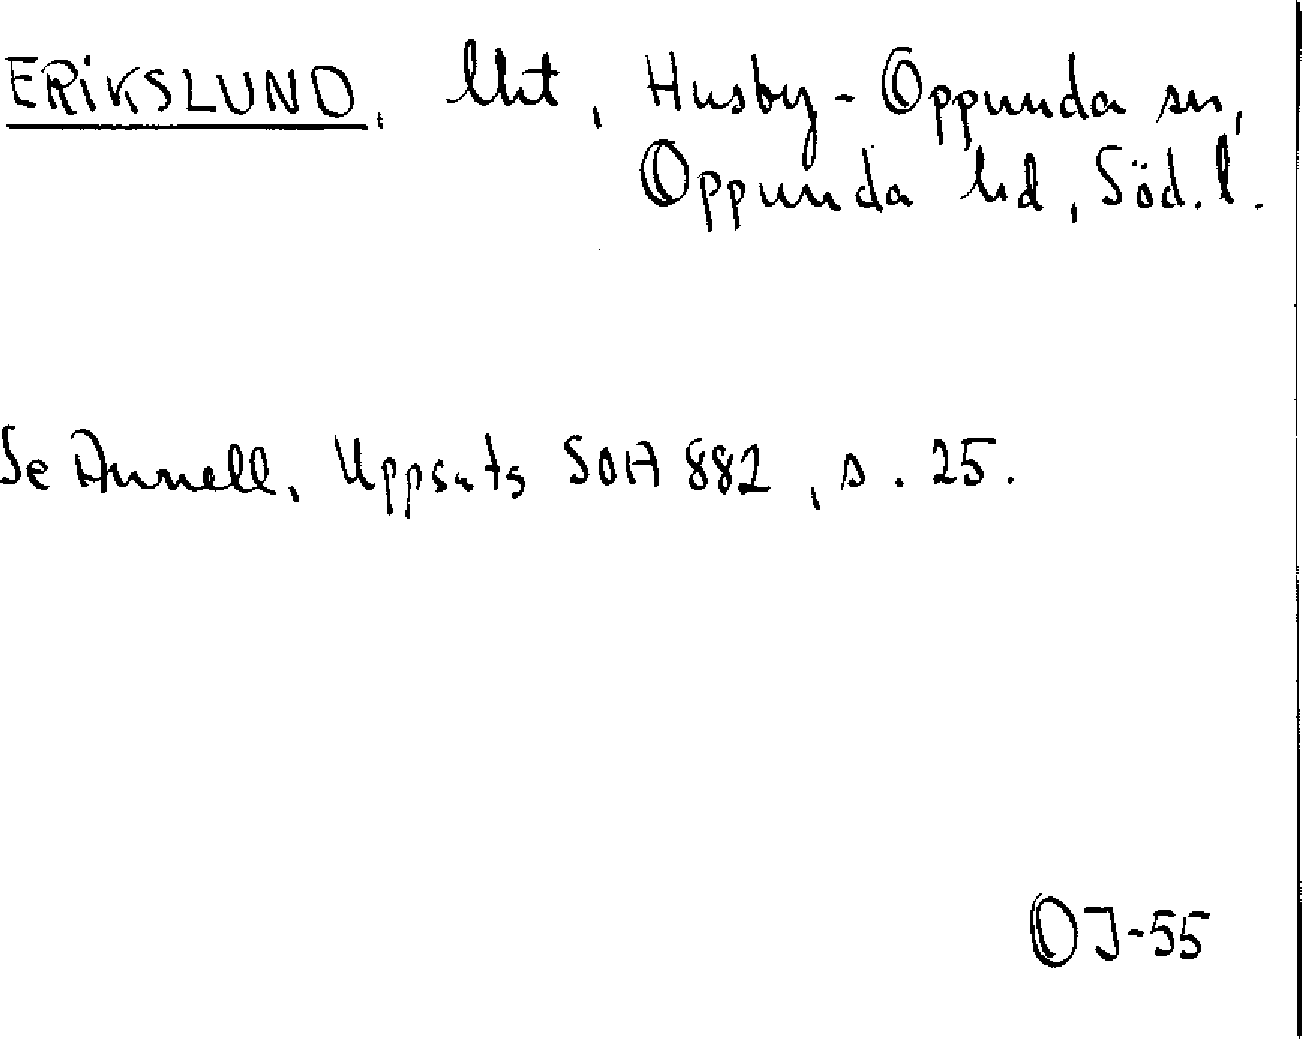 ERIKSLUND, lht, Husby-Oppunda sn,
Oppunda hd, Söd.l.
Se Annell, Uppsats SOA 882, s. 25.
OJ-55